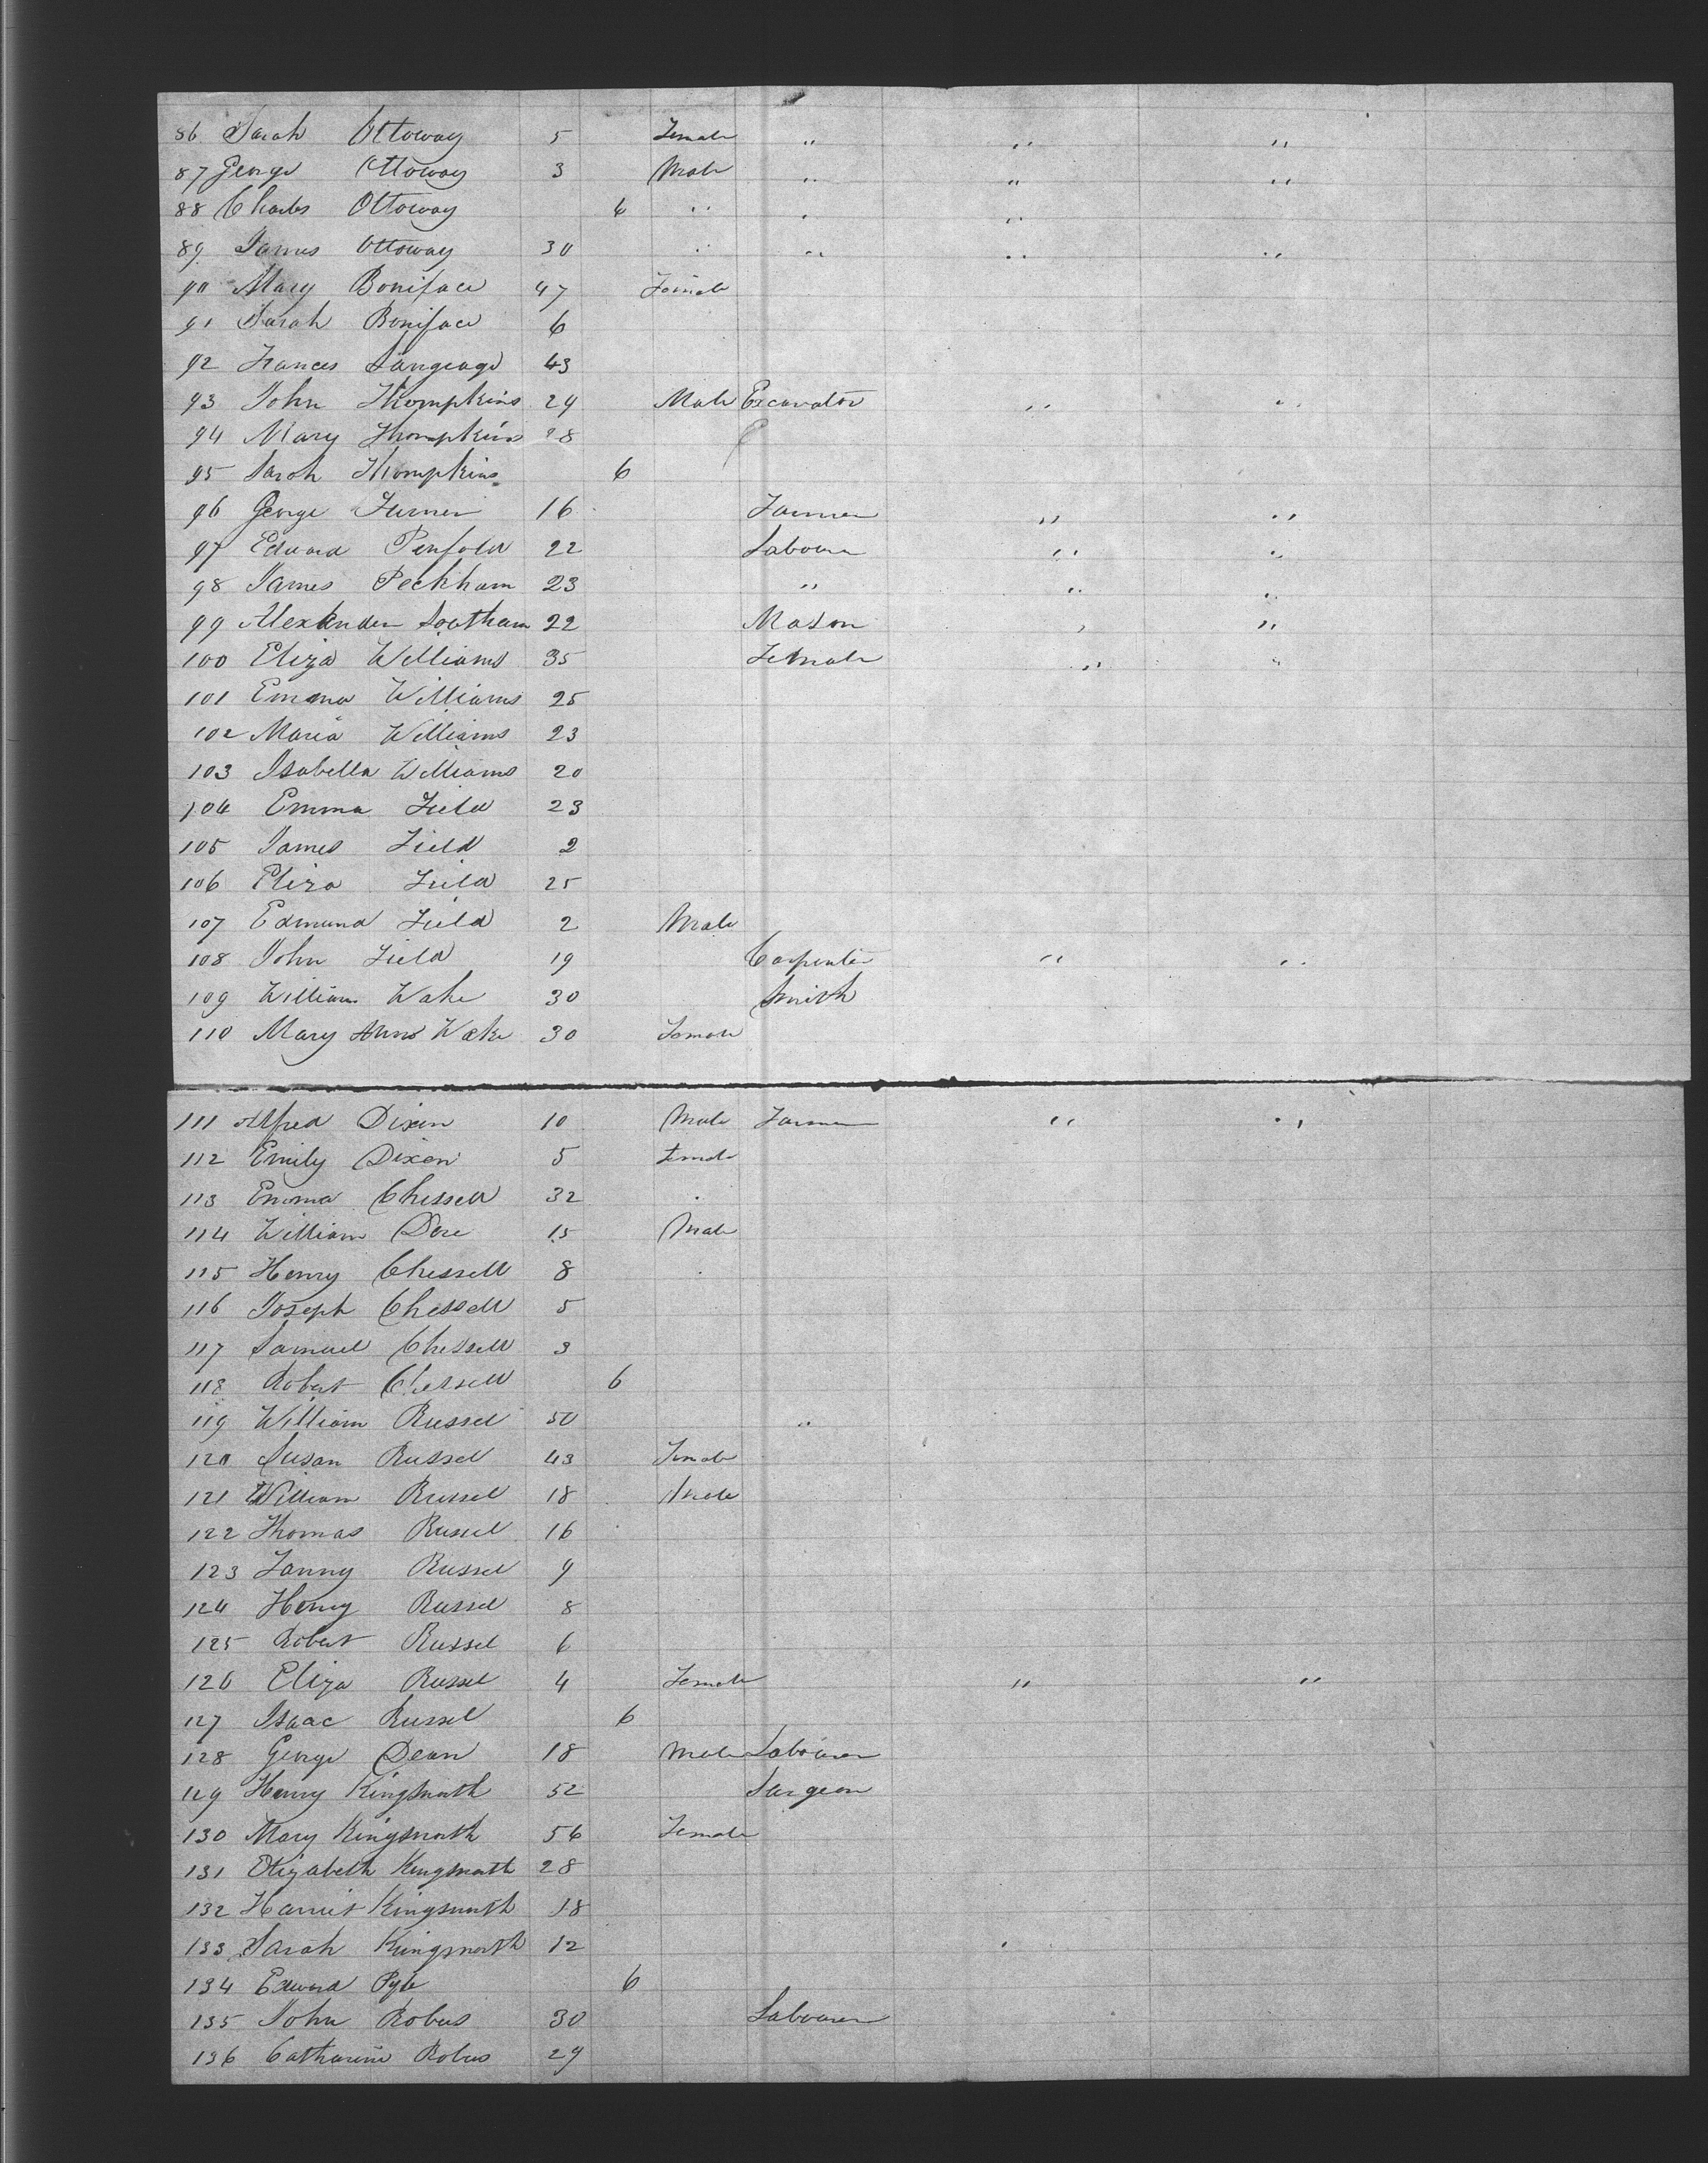 86 Sarah Ottoway 5 Female " " "
87 George Ottoway 3 Male " " "
88 Charles Ottoway 6 " " "
89 James Ottoway 30 " " " "
90 Mary Boniface 47 Female
91 Sarah Boniface 6
92 Frances 43
93 John Thompkins 29 Male Excavator " "
94 Mary Thompkins 28
95 Sarah Thompkins 6
96 George Turner 16 Farmer " "
97 Edward Penfold 22 Labourer " "
98 James Peckham 23 " " "
99 Alexander Southam 22 Mason " "
100 Eliza Williams 35 Female " "
101 Emma Williams 25
102 Maria Williams 23
103 Isabella Williams 20
104 Emma Field 23
105 James Field 2
106 Eliza Field 25
107 Edmund Field 2 Male
108 John Field 19 Carpenter " "
109 William Wake 30 Smith
110 Mary Ann Wake 30 Female
111 Alfred Dixon 10 Male Farmer " "
112 Emily Dixon 5 Female
113 Emma Chessell 32
114 William Dore 15 Male
115 Henry Chessell 8
116 Joseph Chessell 5
117 Samuel Chessell 3
118 Robert Chessell 6
119 William Russel 50 "
120 Susan Russel 43 Female
121 William Russel 18 Male
122 Thomas Russel 16
123 Fanny Russel 9
124 Henry Russel 8
125 Robert Russel 6
126 Eliza Russel 4 Female " "
127 Isaac Russel 6
128 George Dean 18 Male Labourer
129 Henry Kingsnorth 52 Surgeon
130 Mary Kingsnorth 56 Female
131 Elizabeth Kingsnorth 28
132 Harriet Kingsnorth 18
133 Sarah Kingsnorth 12
134 Edward Pyle 6
135 John Robus 30 Labourer
136 Catharine Robus 29